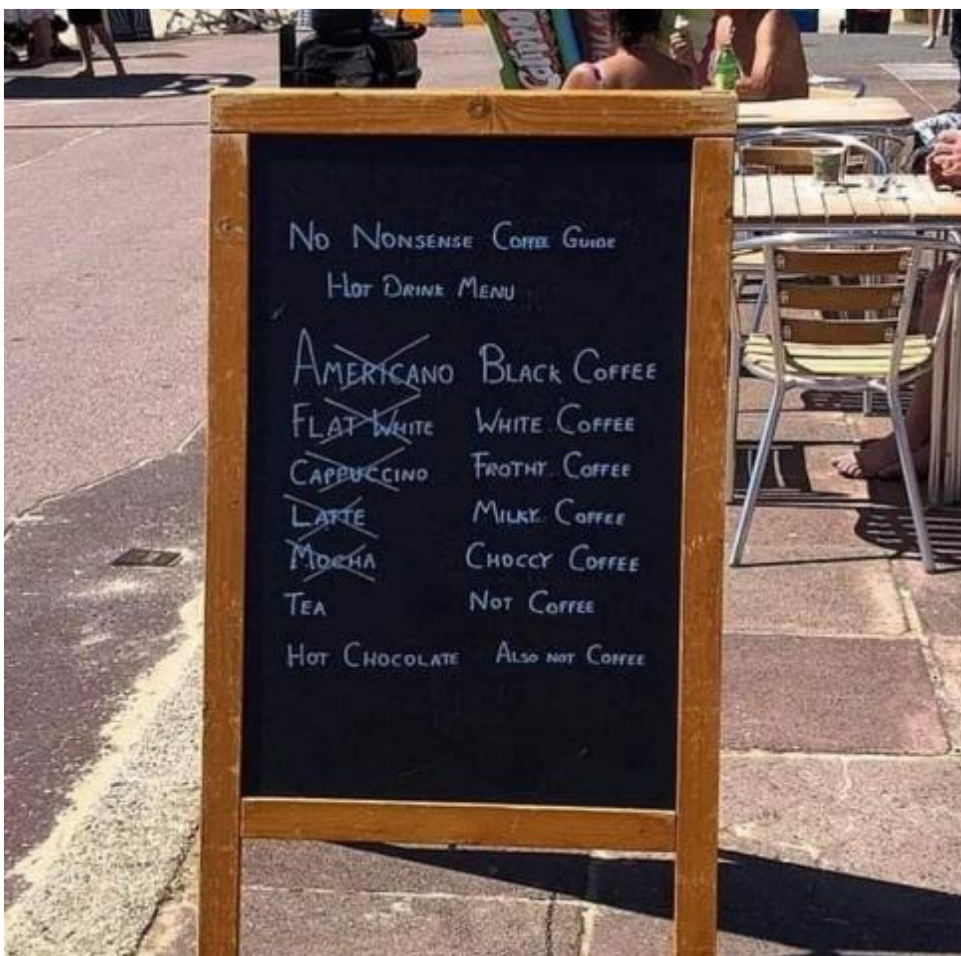 No Nonsense Coffee Guide
Hot Drink Menu
Americano Black Coffee
Flat White White Coffee
Cappuccino Frothy Coffee
Latte Milky Coffee
Mocha Choccy Coffee
Tea Not Coffee
Hot Chocolate Also not Coffee